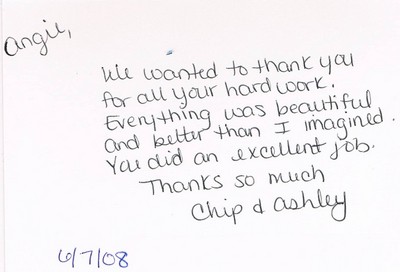 Angie,
We wanted to thank you
for all your hard work.
Everything was beautiful
and better than I imagined.
You did an excellent job.
Thanks so much
Chip & Ashley
6/7/08